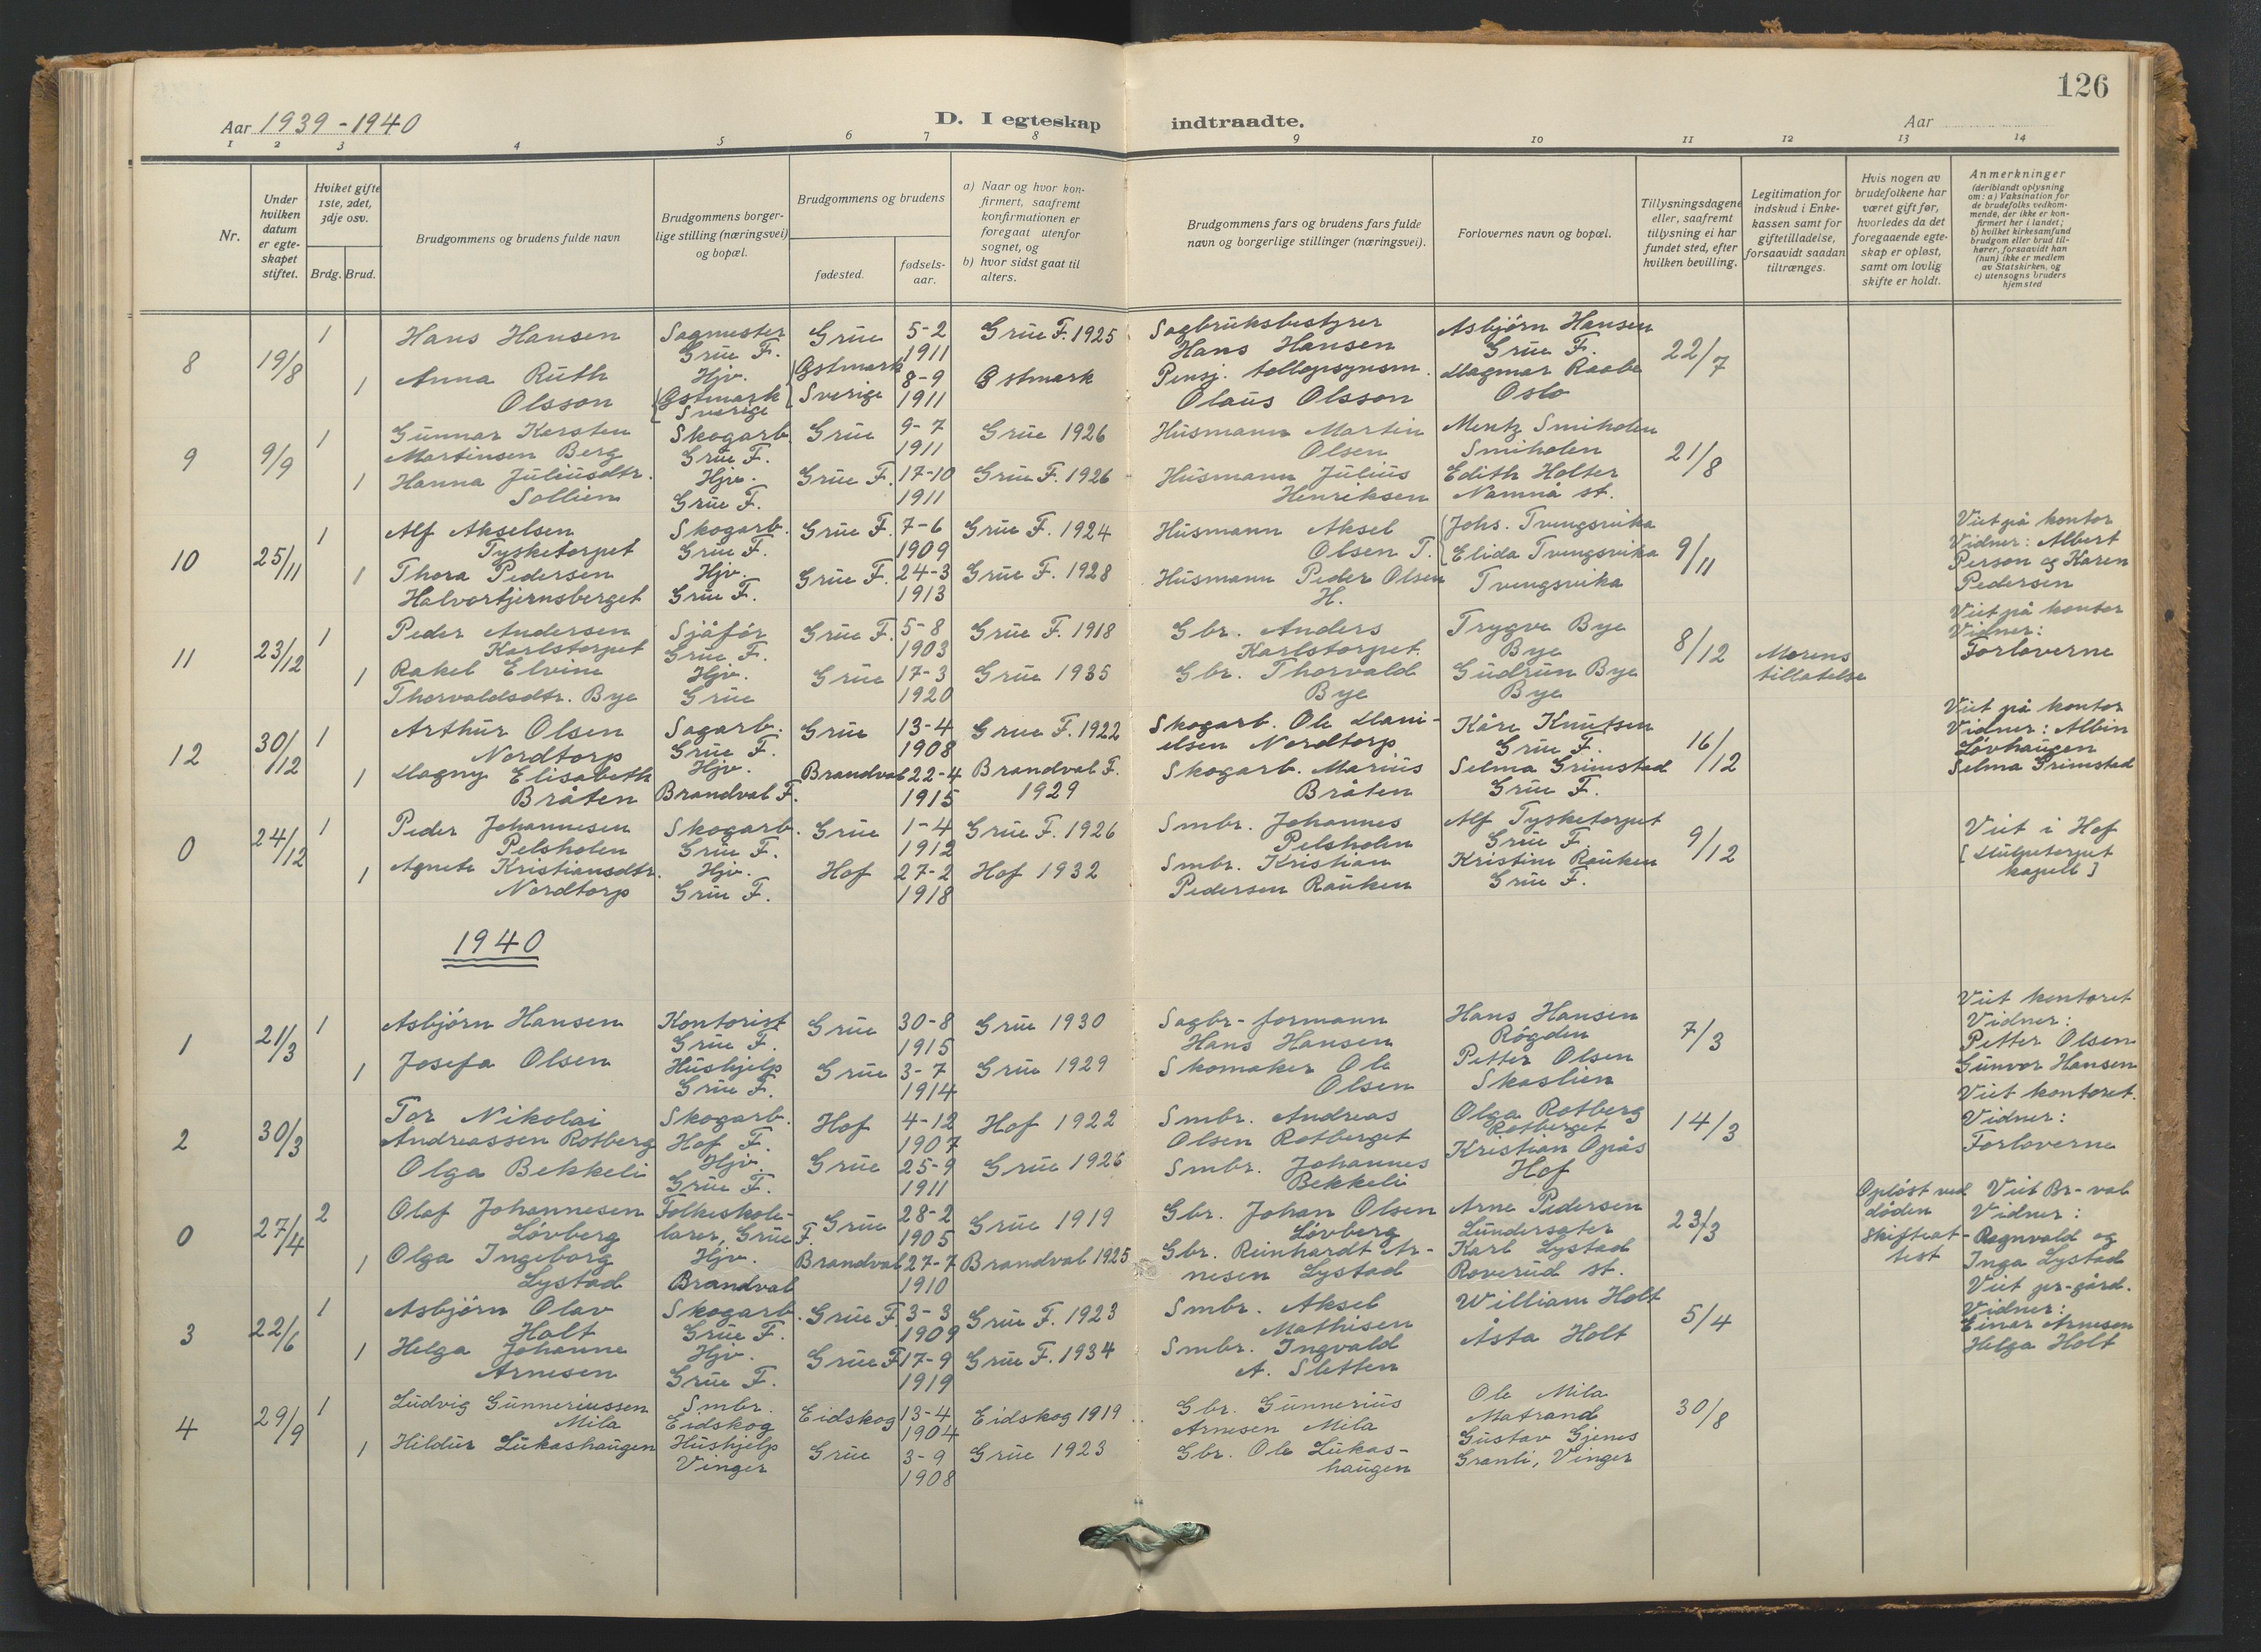 126
Aar 1939-1940
D. I egteskap indtraadte.
Aar
1 2 3 4 5 6 7 8 9 10 11 12 13 14
Nr.
Under
hvilken
datum
er egte-
skapet
stiftet.
Hviket gifte
1ste, 2det,
3dje osv.
Brdg. Brud.
Brudgommens og brudens fulde navn
Brudgommens borger-
lige stilling (næringsvei)
og bopæl.
Brudgommens og brudens
fødested.
fødsels-
aar.
a) Naar og hvor kon-
firmert, saafremt
konfirmationen er
foregaat utenfor
sognet, og
b) hvor sidst gaat til
alters.
Brudgommens fars og brudens fars fulde
navn og borgerlige stillinger (næringsvei).
Forlovernes navn og bopæl.
Tillysningsdagene
eller, saafremt
tillysning ei har
fundet sted, efter
hvilken bevilling.
Legitimation for
indskud i Enke-
kassen samt for
giftetilladelse,
forsaavidt saadan
tiltrænges.
Hvis nogen av
brudefolkene har
været gift før,
hvorledes da det
foregaaende egte-
skap er opløst,
samt om lovlig
skifte er holdt.
Anmerkninger
(deriblandt oplysning
om: a) Vaksination for
de brudefolks vedkom-
mende, der ikke er kon-
firmert her i landet;
b) hvilket kirkesamfund
brudgom eller brud til-
hører, forsaavidt han
(hun) ikke er medlem
av Statskirken, og
c) utensogns bruders
hjemsted
8
19/8
1
1
Hans Hansen
Anna Ruth
Olsson
Sagmester
Grue F.
Hjv.
Östmark
Sverige
Grue
Östmark
Sverige
5-2
1911
8-9
1911
Grue F. 1925
Östmark
Sagbruksbestyrer
Hans Hansen
Pensj. tollopsynsm.
Olaus Olsson
Asbjörn Hansen
Grue F.
Dagmar Raabe
Oslo
22/7
9
9/9
1
1
Gunnar Kersten
Martinsen Berg
Hanna Juliusdtr.
Sollien
Skogarb.
Grue F.
Hjv.
Grue F.
Grue
Grue F.
9-7
1911
17-10
1911
Grue 1926
Grue F. 1926
Husmann Martin
Olsen
Husmann Julius
Henriksen
Mentz Smiholen
Smiholen
Edith Holter
Namnå st.
21/8
10
25/11
1
1
Alf Akselsen
Tysketorpet
Thora Pedersen
Halvortjernsberget
Skogarb.
Grue F.
Hjv.
Grue F.
Grue F.
Grue F.
7-6
1909
24-3
1913
Grue F. 1924
Grue F. 1928
Husmann Aksel
Olsen T.
Husmann Peder Olsen
H.
Johs. Tvengsvika
Elida Tvengsvika
Tvengsvika
9/11
Viet på kontor
Vidner: Albert
Person og Karen
Pedersen
11
23/12
1
1
Peder Andersen
Karlstorpet
Rakel Elvine
Thorvaldsdtr. Bye
Sjåfór
Grue F.
Hjv.
Grue
Grue F.
Grue
5-8
1903
17-3
1920
Grue F. 1918
Grue 1935
Gbr. Anders
Karlstorpet.
Gbr. Thorvald
Bye
Trygve Bye
Bye
Gudrun Bye
Bye
8/12
Morens
tillatelse
Viet på kontor
Vidner:
Forloverne
12
30/12
1
1
Arthur Olsen
Nordtorp
Magny Elisabeth
Bråten
Sagarb.
Grue F.
Hjv.
Brandval F.
Grue
Brandval
13-4
1908
22-4
1915
Grue F. 1922
Brandval F.
1929
Skogarb. Ole Dani-
elsen Nordtorp
Skogarb. Marius
Bråten
Kåre Knutsen
Grue F.
Selma Grimstad
Grue F.
16/12
Viet på kontor
Vidner: Albin
Lóvhaugen
Selma Grimstad
0
24/12
1
1
Peder Johannesen
Pelsholen
Agnete Kristiansdtr.
Nordtorp
Skogarb.
Grue F.
Hjv.
Grue F.
Grue
Hof
1-4
1912
27-2
1918
Grue F. 1926
Hof 1932
Smbr. Johannes
Pelsholen
Smbr. Kristian
Pedersen Rauken
Alf Tysketorpet
Grue F.
Kristine Rauken
Grue F.
9/12
Viet i Hof
kapell]
1940
1
21/3
1
1
Asbjórn Hansen
Josefa Olsen
Kontorist
Grue F.
Hushjelp
Grue F.
Grue
Grue
30-8
1915
3-7
1914
Grue 1930
Grue 1929
Sagbr-formann
Hans Hansen
Skomaker Ole
Olsen
Hans Hansen
Rógden
Petter Olsen
Skaslien
7/3
Viet kontoret
Vidner:
Petter Olsen
Gunvor Hansen
2
30/3
Tor Nikolai
Andreassen Rotberg
Olga Bekkeli
Skogarb.
Hof F.
Hjv.
Grue F.
Hof
Grue
4-12
1907
25-9
1911
Hof 1922
Grue 1926
Smbr. Andreas
Olsen Rotberget
Smbr. Johannes
Bekkeli
Olga Rotberg
Rotberget
Kristian Opås
Hof
14/3
Viet kontoret.
Vidner:
Forloverne
0
27/4
2
1
Olaf Johannesen
Lóvberg
Olga Ingeborg
Lystad
Folkeskole-
lærer, Grue F.
Hjv.
Brandval
Grue
Brandval
28-2
1905
27-7
1910
Grue 1919
Brandval 1925
Gbr. Johan Olsen
Lóvberg
Gbr. Reinhardt Ar-
nesen Lystad
Arne Pedersen
Lundersæter
Karl Lystad
Roverud st.
23/3
Oplóst ved
döden
Skifteat-
test
Viet Br-val
Vidner:
Ragnvald og
Inga Lystad
3
22/6
1
1
Asbjórn Olav
Holt
Helga Johanne
Arnesen
Skogarb.
Grue F.
Hjv.
Grue F.
Grue F.
Grue F.
3-3
1909
17-9
1919
Grue F. 1923
Grue F. 1934
Smbr. Aksel
Mathisen
Smbr. Ingvald
A. Sletten
William Holt
Åsta Holt
5/4
Viet pr-gård.
Vidner:
Einar Arnesen
Helga Holt
4
29/9
1
1
Ludvig Gunneriussen
Mila
Hildur Lukashaugen
Smbr.
Eidskog
Hushjelp
Vinger
Eidskog
Grue
13-4
1904
3-9
1908
Eidskog 1919
Grue 1923
Gbr. Gunnerius
Arnesen Mila
Gbr. Ole Lukas-
haugen
Ole Mila
Matrand
Gustav Gjenes
Granli, Vinger
30/8